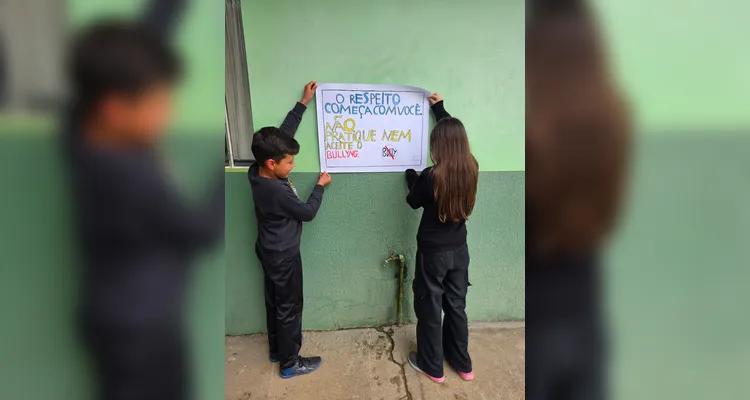 O RESPEITO
COMEÇA COM VOCÊ.
NÃO
PRATIQUE NEM
ACEITE O
BULLYNG.
BULLY